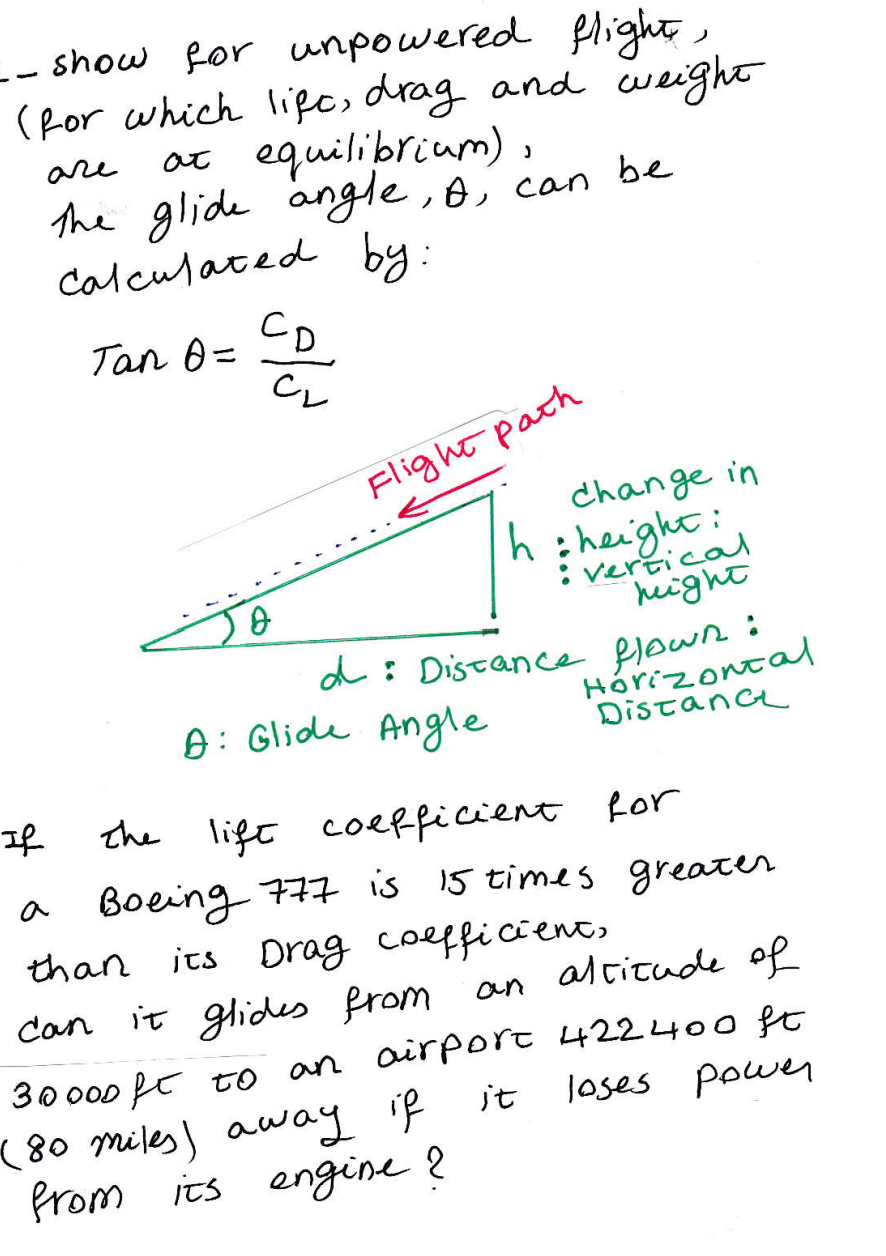 -- show for unpowered flight,
(for which lift, drag and weight
are at equilibrium),
the glide angle, θ, can be
calculated by:
Tan θ = C_D / C_L
Flight path
h : change in
height :
vertical
height
θ
d : Distance flown :
Horizontal
Distance
θ : Glide Angle
If the lift coefficient for
a Boeing 777 is 15 times greater
than its Drag coefficient,
can it glides from an altitude of
30000 ft to an airport 422400 ft
(80 miles) away if it loses power
from its engine?